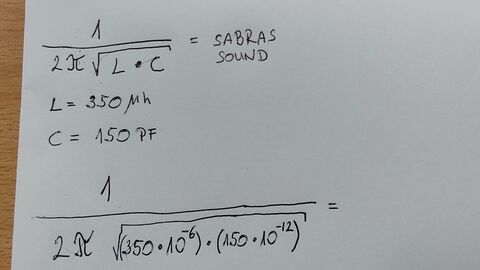 1
2π√L · C = SABRAS
SOUND
L = 350 μh
C = 150 PF
1
2π √(350·10⁻⁶)·(150·10⁻¹²) =